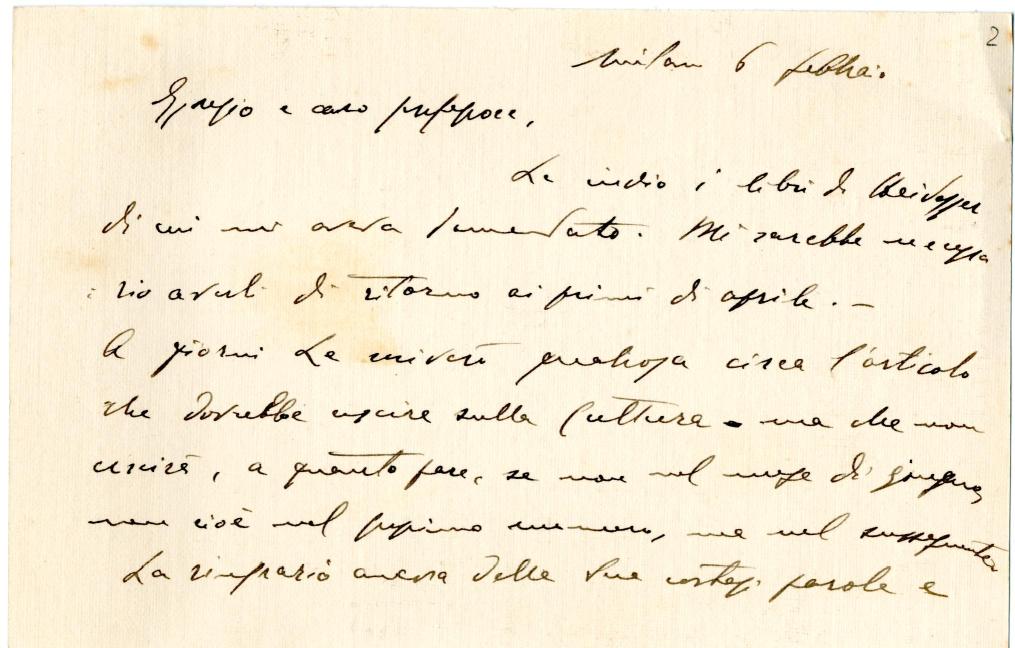 2
Milano 6 febbr.
Egregio e caro professore,
Le invio i libri di Heidegger
di cui mi aveva domandato. Mi sarebbe necessa
rio averli di ritorno ai primi di aprile. —
A giorni Le scriverò qualcosa circa l'articolo
che dovrebbe uscire sulla Cultura - ma che non
uscirà, a quanto pare, se non nel mese di giugno,
non cioè nel prossimo numero, ma nel susseguente.
La ringrazio ancora delle Sue cortesi parole e